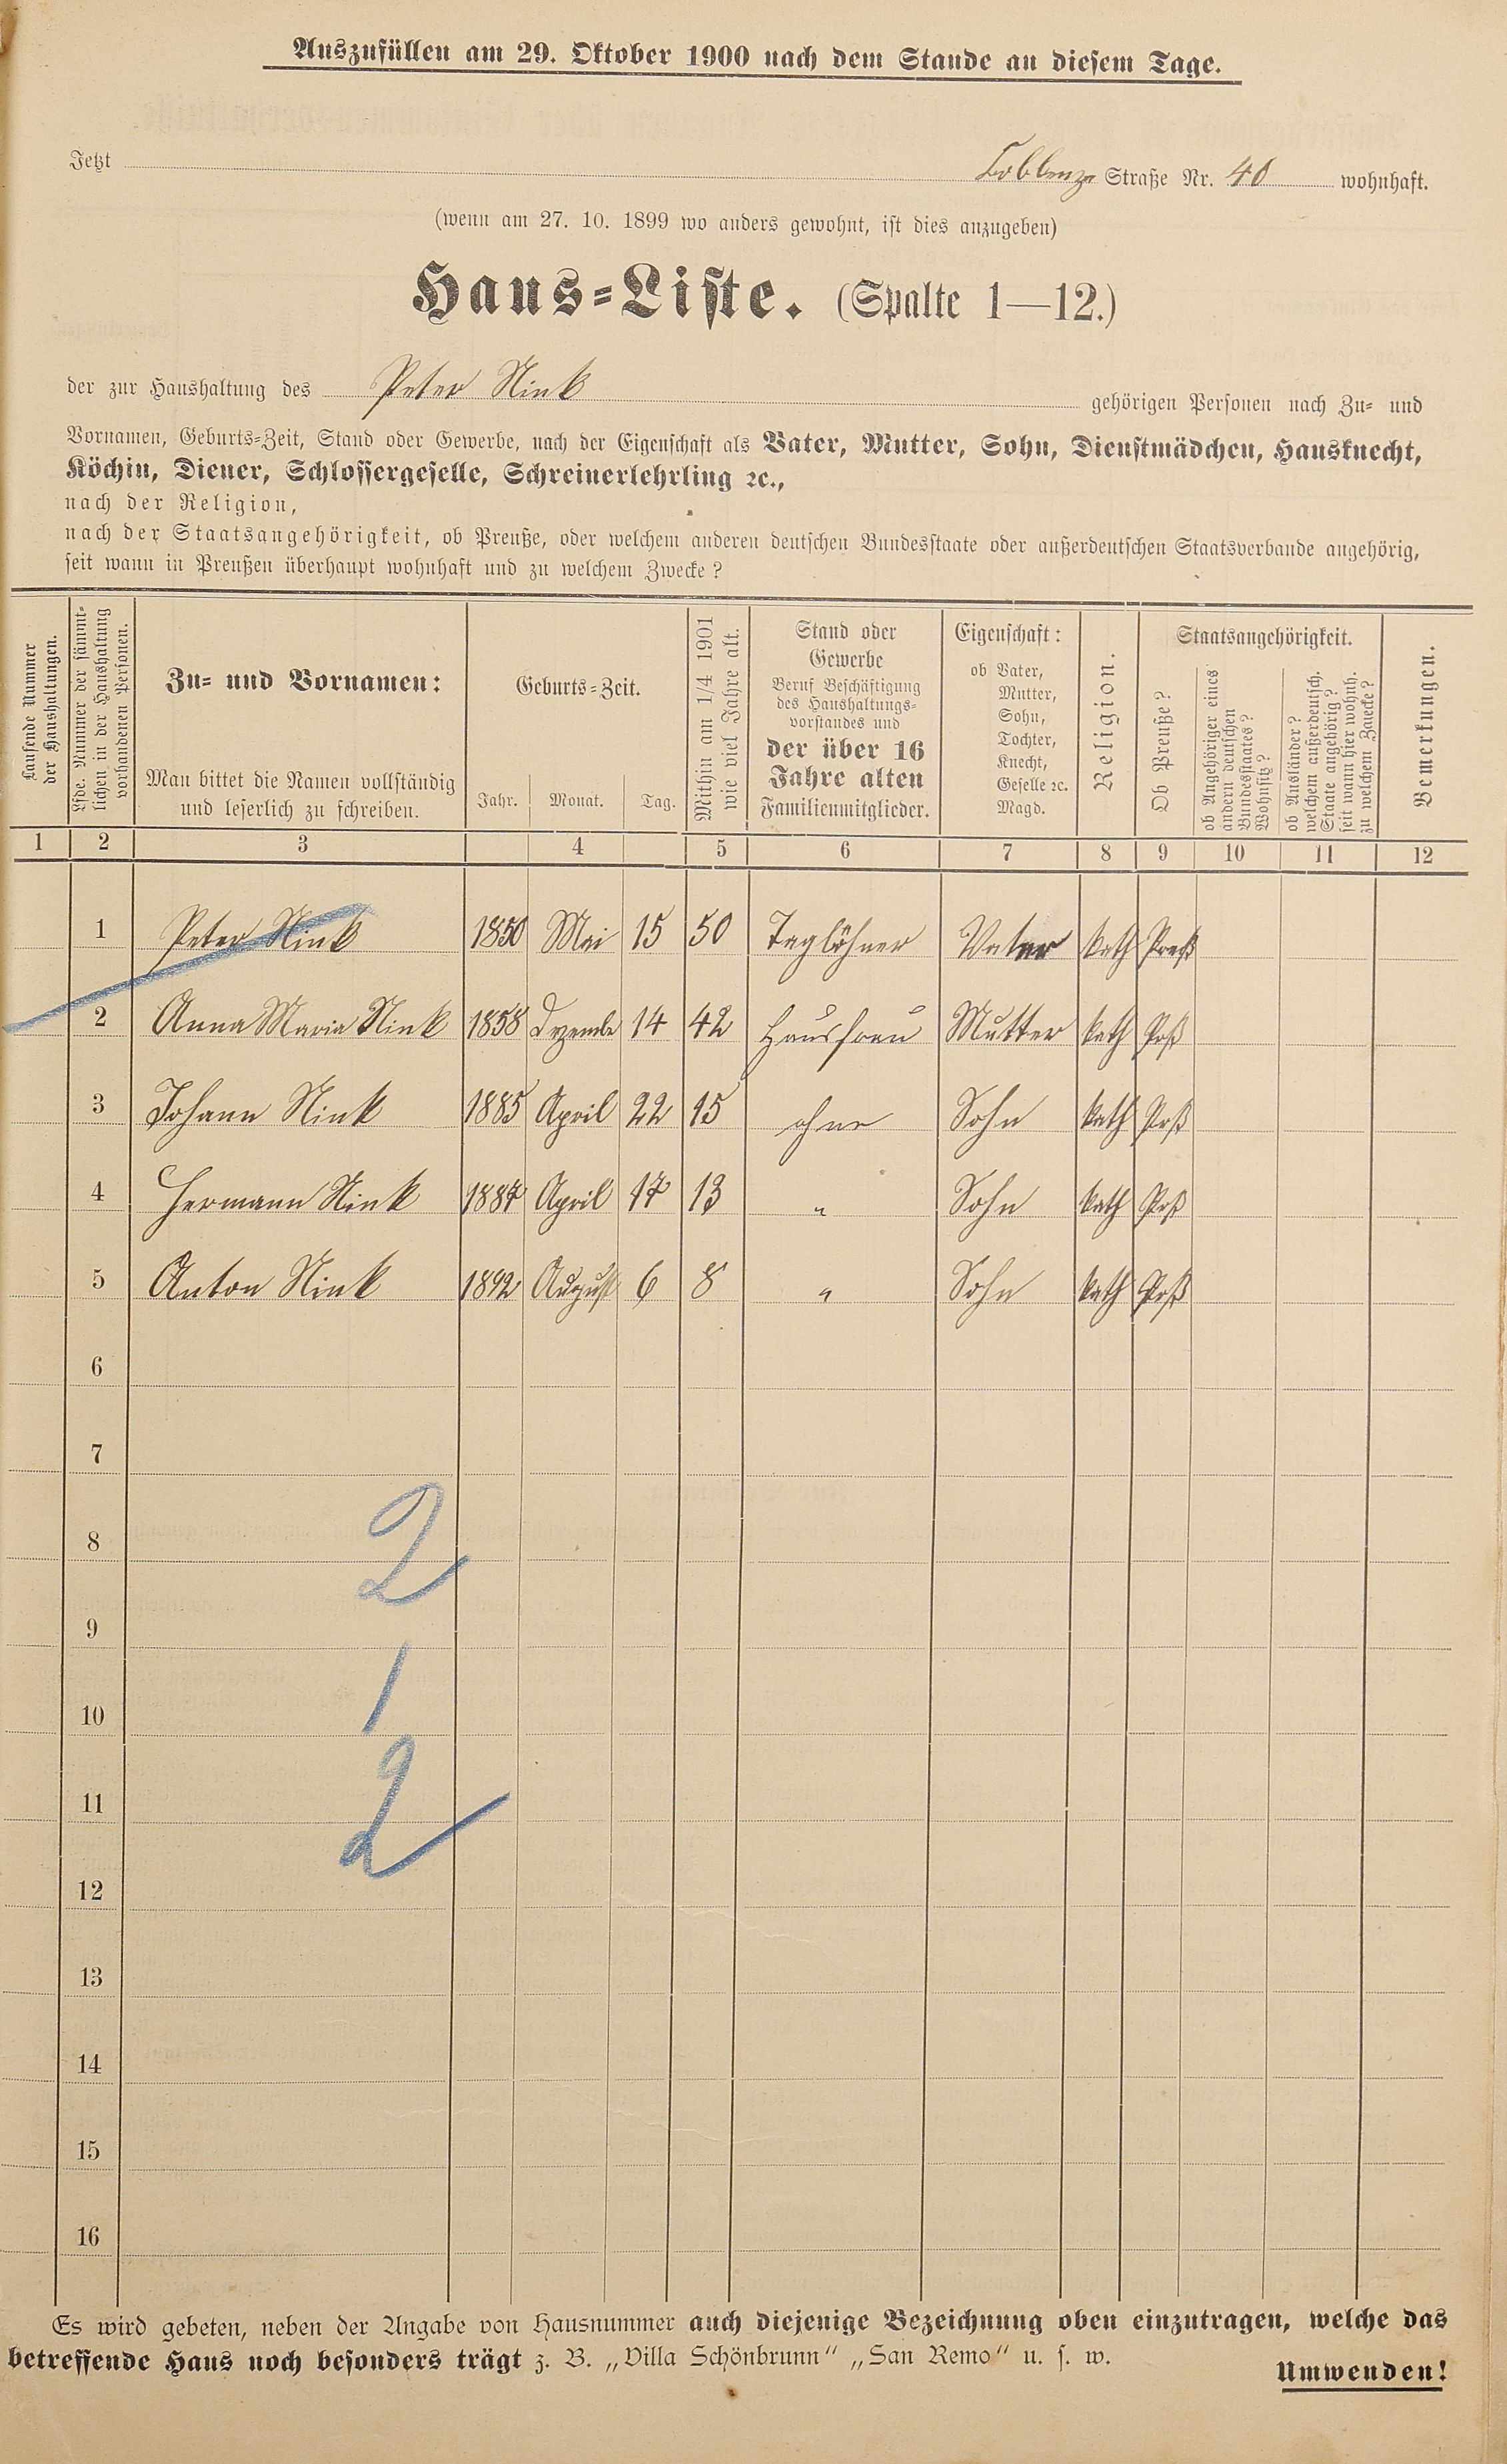 Auszufüllen am 29. Oktober 1900 nach dem Stande an diesem Tage.
Jetzt Coblenzer Straße Nr. 40 wohnhaft.
(wenn am 27. 10. 1899 wo anders gewohnt, ist dies anzugeben)
Haus-Liste. (Spalte 1—12.)
der zur Haushaltung des Peter Nink gehörigen Personen nach Zu- und
Vornamen, Geburts-Zeit, Stand oder Gewerbe, nach der Eigenschaft als Vater, Mutter, Sohn, Dienstmädchen, Hausknecht,
Köchin, Diener, Schlossergeselle, Schreinerlehrling ꝛc.,
nach der Religion,
nach der Staatsangehörigkeit, ob Preuße, oder welchem anderen deutschen Bundesstaate oder außerdeutschen Staatsverbande angehörig,
seit wann in Preußen überhaupt wohnhaft und zu welchem Zwecke?
Laufende Nummer
der Haushaltungen.
Lfde. Nummer der sämmt-
lichen in der Haushaltung
vorhandenen Personen.
Zu- und Vornamen:
Man bittet die Namen vollständig
und leserlich zu schreiben.
Geburts-Zeit.
Jahr. Monat. Tag.
Mithin am 1/4 1901
wie viel Jahre alt.
Stand oder
Gewerbe
Beruf Beschäftigung
des Haushaltungs-
vorstandes und
der über 16
Jahre alten
Familienmitglieder.
Eigenschaft:
ob Vater,
Mutter,
Sohn,
Tochter,
Knecht,
Geselle ꝛc.
Magd.
Religion.
Staatsangehörigkeit.
Ob Preuße?
ob Angehöriger eines
andern deutschen
Bundesstaates?
Wohnsitz?
ob Ausländer?
welchem außerdeutsch.
Staate angehörig?
seit wann hier wohnh.
zu welchem Zwecke?
Bemerkungen.
1 2 3 4 5 6 7 8 9 10 11 12
1 Peter Nink 1850 Mai 15 50 Taglöhner Vater kath Preß
2 Anna Maria Nink 1858 Dezembe 14 42 Hausfrau Mutter kath Prß
3 Johann Nink 1885 April 22 15 ohne Sohn kath Prß
4 Hermann Nink 1887 April 17 13 " Sohn kath Prß
5 Anton Nink 1892 August 6 8 " Sohn kath Prß
6
7
8 2
9
10 1
11 2
12
13
14
15
16
Es wird gebeten, neben der Angabe von Hausnummer auch diejenige Bezeichnung oben einzutragen, welche das
betreffende Haus noch besonders trägt z. B. „Villa Schönbrunn" „San Remo" u. s. w.
Umwenden!